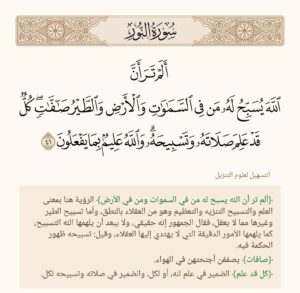 سُورَةُ النُّورِ
أَلَمْ تَرَ أَنَّ
ٱللَّهَ يُسَبِّحُ لَهُۥ مَن فِى ٱلسَّمَـٰوَٰتِ وَٱلْأَرْضِ وَٱلطَّيْرُ صَـٰٓفَّـٰتٍۖ كُلٌّ
قَدْ عَلِمَ صَلَاتَهُۥ وَتَسْبِيحَهُۥۗ وَٱللَّهُ عَلِيمٌۢ بِمَا يَفْعَلُونَ ٤١
التسهيل لعلوم التنزيل
﴿ألم تر أن الله يسبح له من في السموات ومن في الأرض﴾ الرؤية هنا بمعنى
العلم والتسبيح التنزيه والتعظيم وهو من العقلاء بالنطق، وأما تسبيح الطير
وغيرها مما لا يعقل، فقال الجمهور إنه حقيقي، ولا يبعد أن يلهمها الله التسبيح
كما يلهمها الأمور الدقيقة التي لا يهتدي إليها العقلاء، وقيل: تسبيحه ظهور
الحكمة فيه.
﴿صافات﴾ يصففن أجنحتهن في الهواء.
﴿كل قد علم﴾ الضمير في علم لله، أو لكل، والضمير في صلاته وتسبيحه لكل.